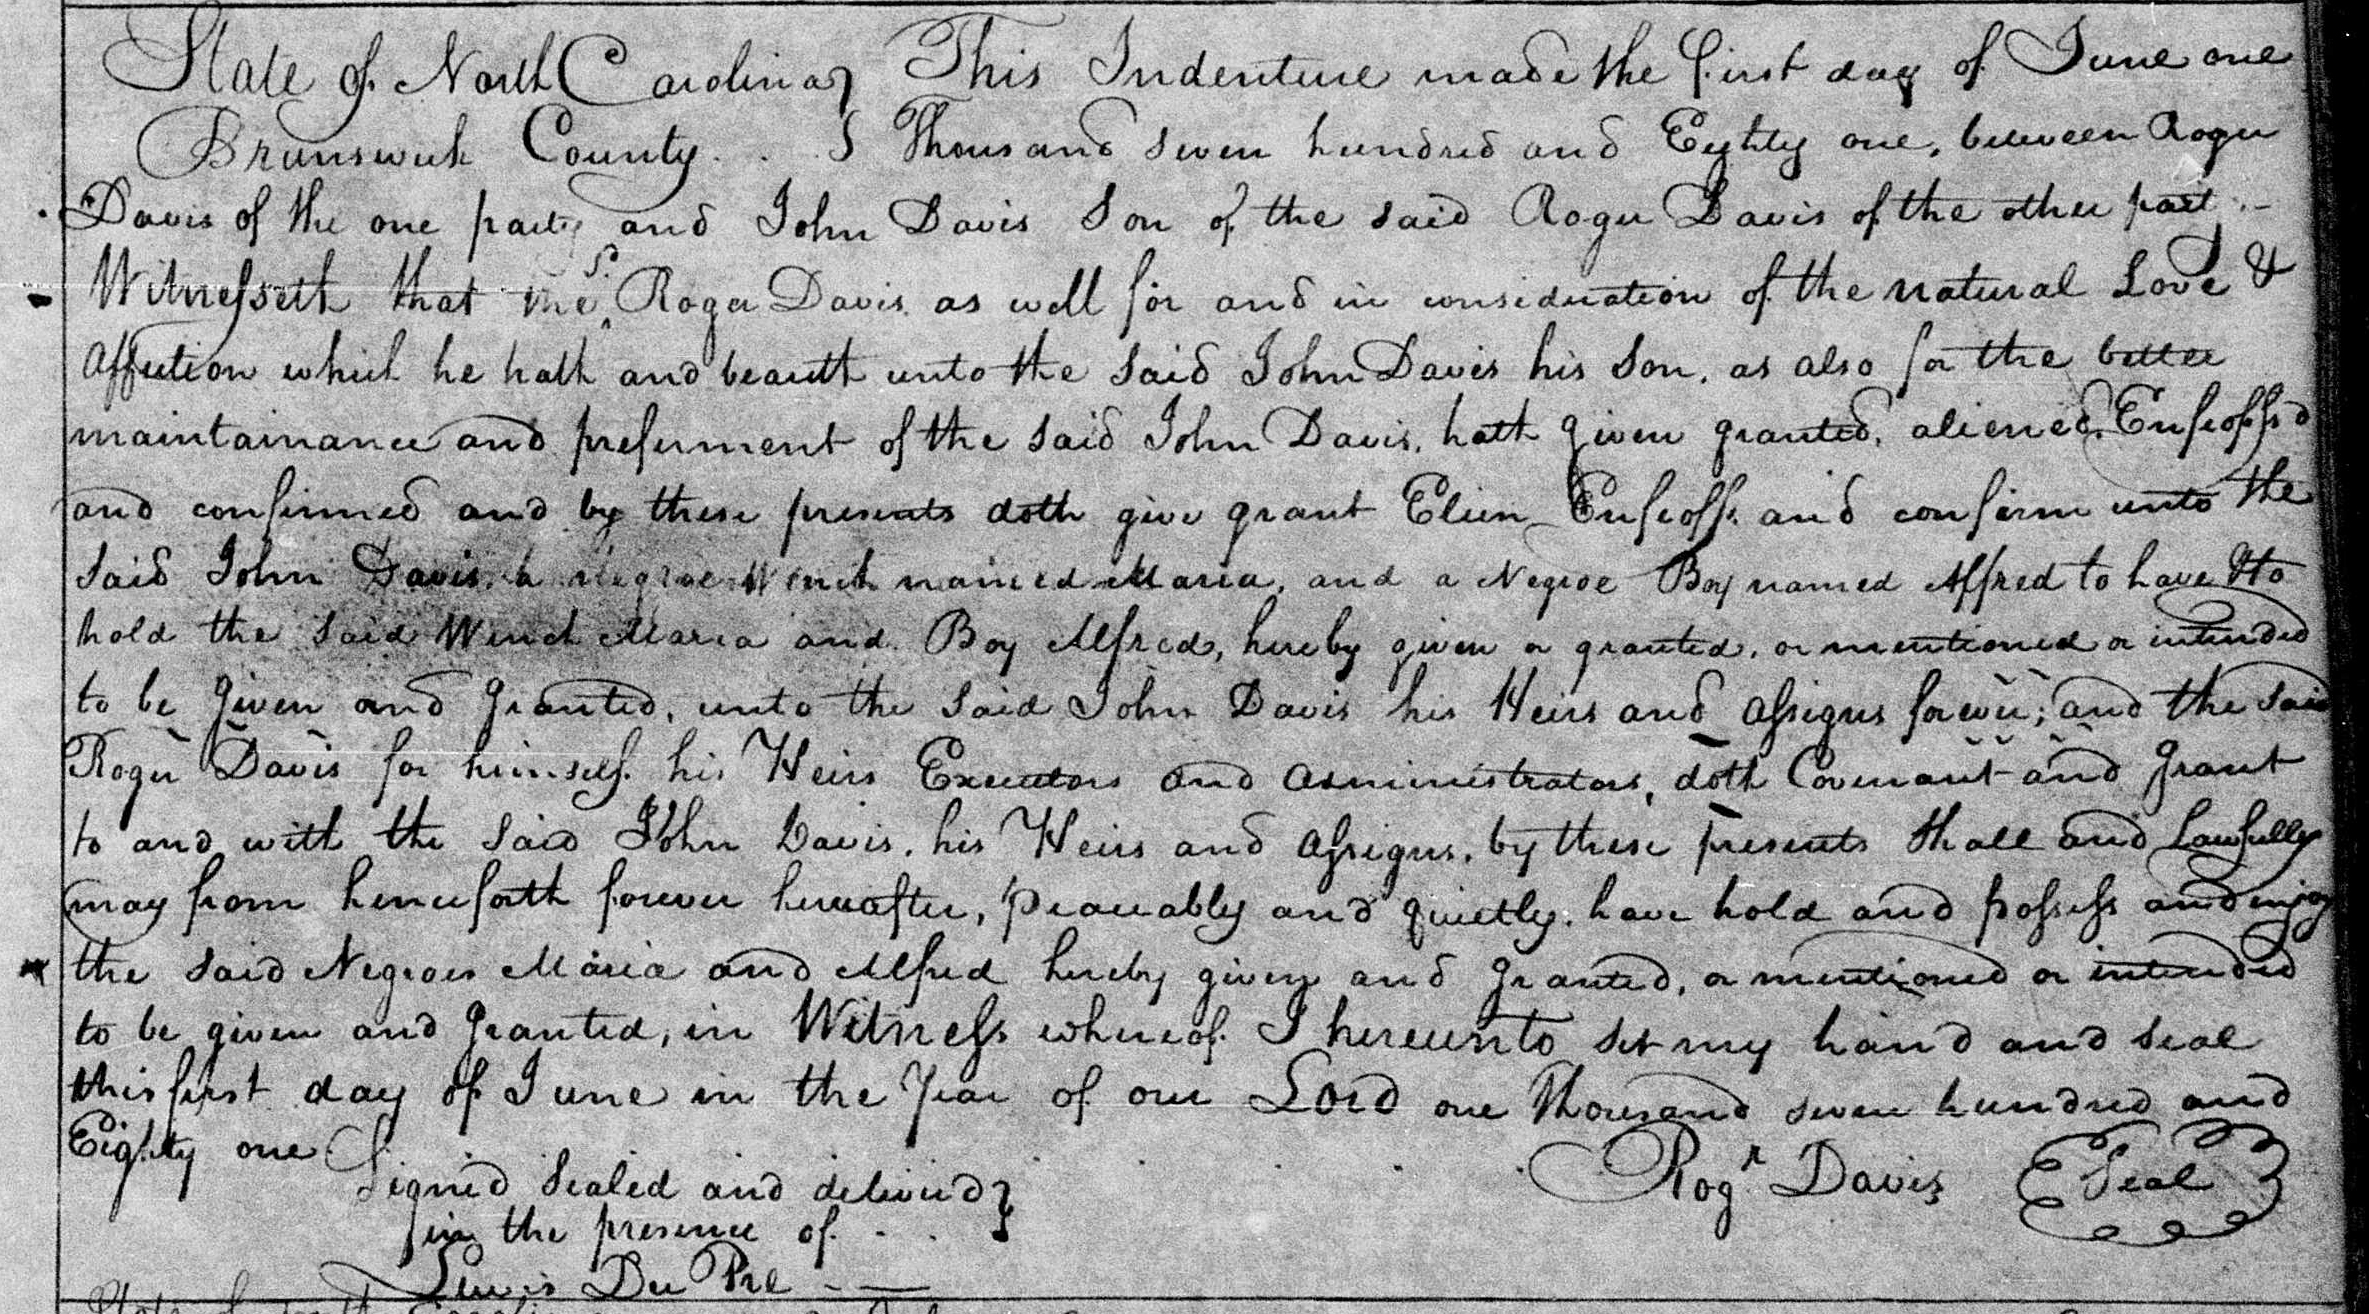 State of North Carolina } This Indenture made the first day of June one
Brunswick County . . } Thousand seven hundred and Eighty one, between Roger
Davis of the one party and John Davis Son of the said Roger Davis of the other part .-
Witnesseth that the sd. Roger Davis as well for and in consideration of the natural Love &
Affection which he hath and beareth unto the said John Davis his Son, as also for the better
maintainance and preferment of the said John Davis, hath given granted, aliened, Enfeoffs'd
and confirmed and by these presents doth give grant Elien Enfeoffs and confirm unto the
said John Davis, a negroe Wench named Maria, and a Negroe Boy named Alfred to have & to
hold the said Wench Maria and Boy Alfred, hereby given or granted, or mentioned or intended
to be given and Granted, unto the said John Davis his Heirs and assigns forever; and the said
Roger Davis for himself his Heirs Executors and administrators, doth Covenant and Grant
to and with the said John Davis, his Heirs and assigns, by these presents shall and Lawfully
may from henceforth forever hereafter, peaceably and quietly, have hold and possess and enjoy
the said Negroes Maria and Alfred hereby given and Granted, or mentioned or intended
to be given and Granted, in Witness whereof I hereunto set my hand and seal
this first day of June in the Year of our Lord one Thousand seven hundred and
Eighty one
Signed Sealed and deliverd } Rogr Davis Seal
in the presence of - . }
Lewis Du Pre - —